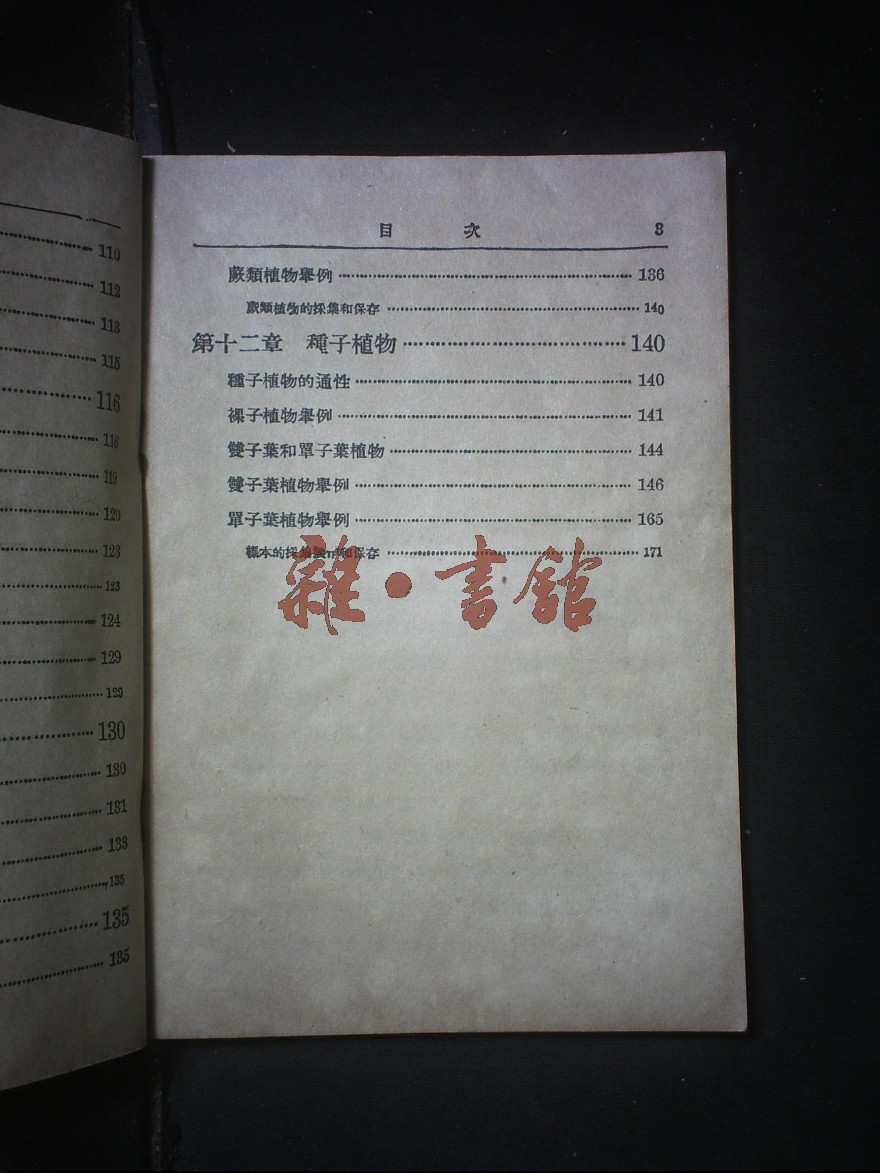 110
112
113
115
116
118
119
120
123
123
124
129
129
130
130
131
133
135
135
135
目 次 3
蕨類植物舉例 136
蕨類植物的採集和保存 140
第十二章 種子植物 140
種子植物的通性 140
裸子植物舉例 141
雙子葉和單子葉植物 144
雙子葉植物舉例 146
單子葉植物舉例 165
標本的採集製作和保存 171
雜·書館